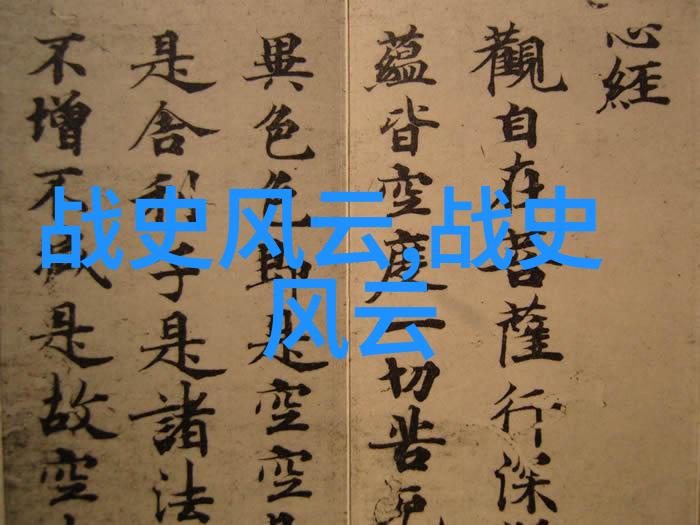 战史风云,战史
风云
心經
觀自在菩薩行深
蘊皆空度一切苦厄
異色色即是空空
是舍利子是諸法
不增不減是故空